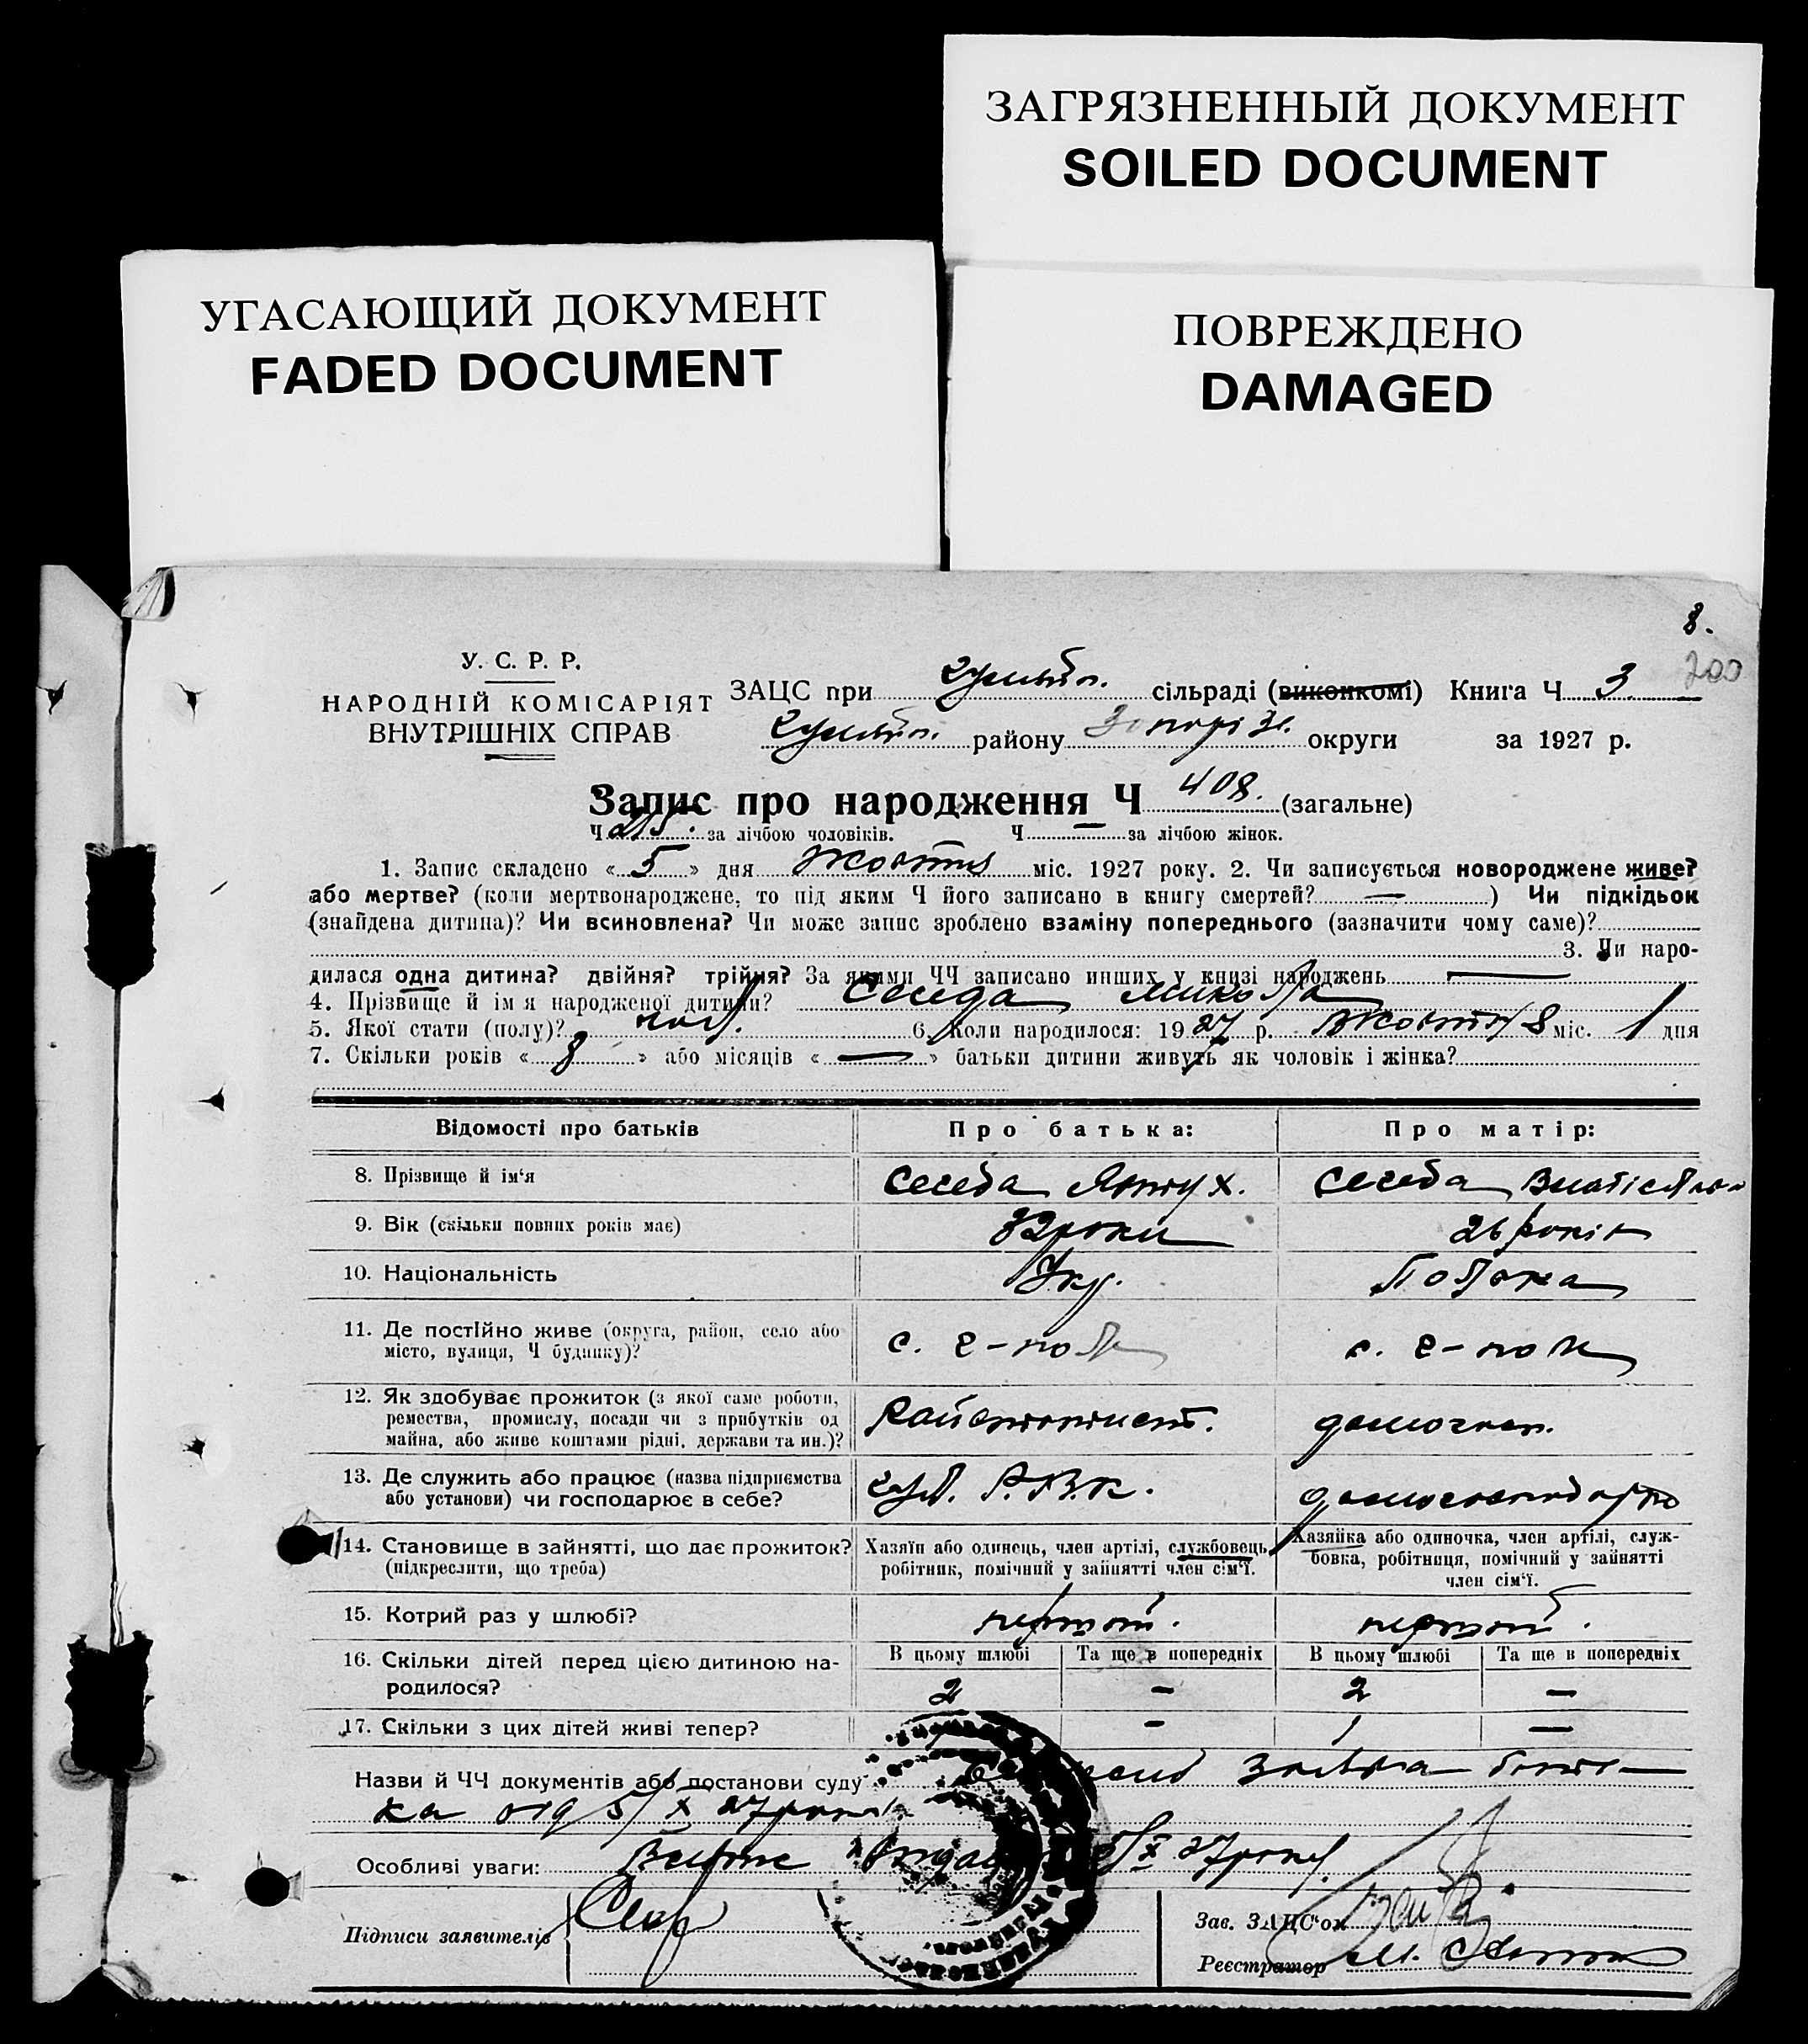 ЗАГРЯЗНЕННЫЙ ДОКУМЕНТ
SOILED DOCUMENT
УГАСАЮЩИЙ ДОКУМЕНТ
FADED DOCUMENT
ПОВРЕЖДЕНО
DAMAGED
8.
200
У. С. Р. Р.
НАРОДНІЙ КОМІСАРІЯТ
ВНУТРІШНІХ СПРАВ
ЗАЦС при сільраді (виконкомі) Книга Ч 3
району округи за 1927 р.
Запис про народження Ч 408. (загальне)
Ч 215. за лічбою чоловіків. Ч — за лічбою жінок.
1. Запис складено « 5 » дня Жовтня міс. 1927 року. 2. Чи записується новороджене живе?
або мертве? (коли мертвонароджене, то під яким Ч його записано в книгу смертей? — ) Чи підкідьок
(знайдена дитина)? Чи всиновлена? Чи може запис зроблено взаміну попереднього (зазначити чому саме)?
3. Чи наро-
дилася одна дитина? двійня? трійня? За якими ЧЧ записано инших у книзі народжень —
4. Прізвище й ім я народженої дитини? Сегеда Микола
5. Якої стати (полу)? чол. 6. Коли народилося: 1927 р. Жовтня міс. 1 дня
7. Скільки років « 8 » або місяців « — » батьки дитини живуть як чоловік і жінка?
Відомості про батьків Про батька: Про матір:
8. Прізвище й ім'я Сегеда Сегеда
9. Вік (скільки повних років має) 32 роки 26 років
10. Національність Укр. Полька
11. Де постійно живе (округа, район, село або
місто, вулиця, Ч будинку)? с. Г-поле с. Г-поле
12. Як здобуває прожиток (з якої саме роботи,
ремества, промислу, посади чи з прибутків од
майна, або живе коштами рідні, держави та ин.)? домогосп.
13. Де служить або працює (назва підприємства
або установи) чи господарює в себе? Гул. Р.В.К.
14. Становище в зайнятті, що дає прожиток?
(підкреслити, що треба)
Хазяїн або одинець, член артілі, службовець,
робітник, помічний у зайнятті член сім'ї.
Хазяйка або одиночка, член артілі, служ-
бовка, робітниця, помічний у зайнятті
член сім'ї.
15. Котрий раз у шлюбі? первий. первий.
В цьому шлюбі Та ще в попередніх В цьому шлюбі Та ще в попередніх
16. Скільки дітей перед цією дитиною на-
родилося? 2 — 2 —
17. Скільки з цих дітей живі тепер? — 1 —
Назви й ЧЧ документів або постанови суду Заява бать-
ка від 5/X 27 року
Особливі уваги: 5/X 27 року.
Підписи заявителів
Зав. ЗАЦС'ом
Реєстратор